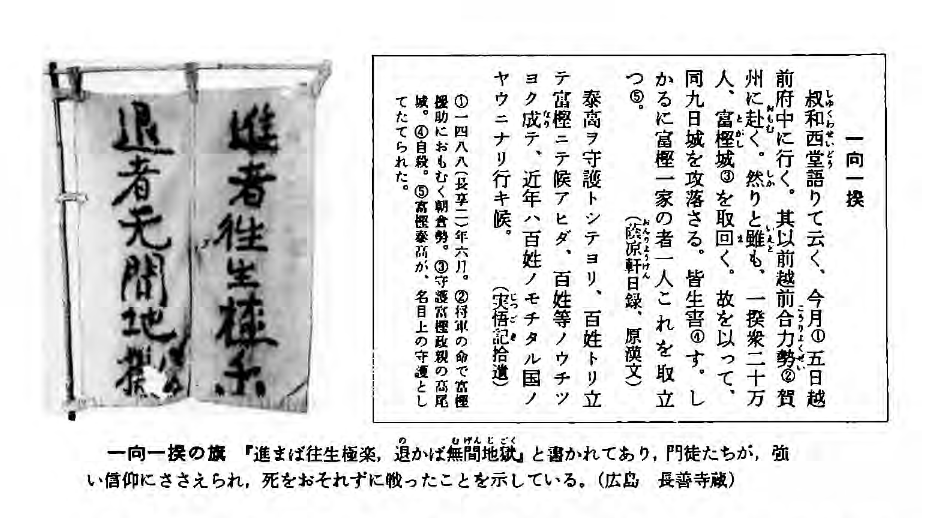 一向一揆
叔和西堂語りて云く、今月①五日越
前府中に行く。其以前越前合力勢②賀
州に赴く。然りと雖も、一揆衆二十万
人、富樫城③を取回く。故を以って、
同九日城を攻落さる。皆生害④す。し
かるに富樫一家の者一人これを取立
つ⑤。（蔭凉軒日録、原漢文）
泰高ヲ守護トシテヨリ、百姓トリ立
テ富樫ニテ候アヒダ、百姓等ノウチツ
ヨク成テ、近年ハ百姓ノモチタル国ノ
ヤウニナリ行キ候。（実悟記拾遺）
①一四八八(長享二)年六月。②将軍の命で富樫
援助におもむく朝倉勢。③守護富樫政親の高尾
城。④自殺。⑤富樫泰高が、名目上の守護とし
てたてられた。
進者往生極楽
退者无間地獄
一向一揆の旗 『進まば往生極楽，退かば無間地獄』と書かれてあり，門徒たちが，強
い信仰にささえられ，死をおそれずに戦ったことを示している。（広島 長善寺蔵）